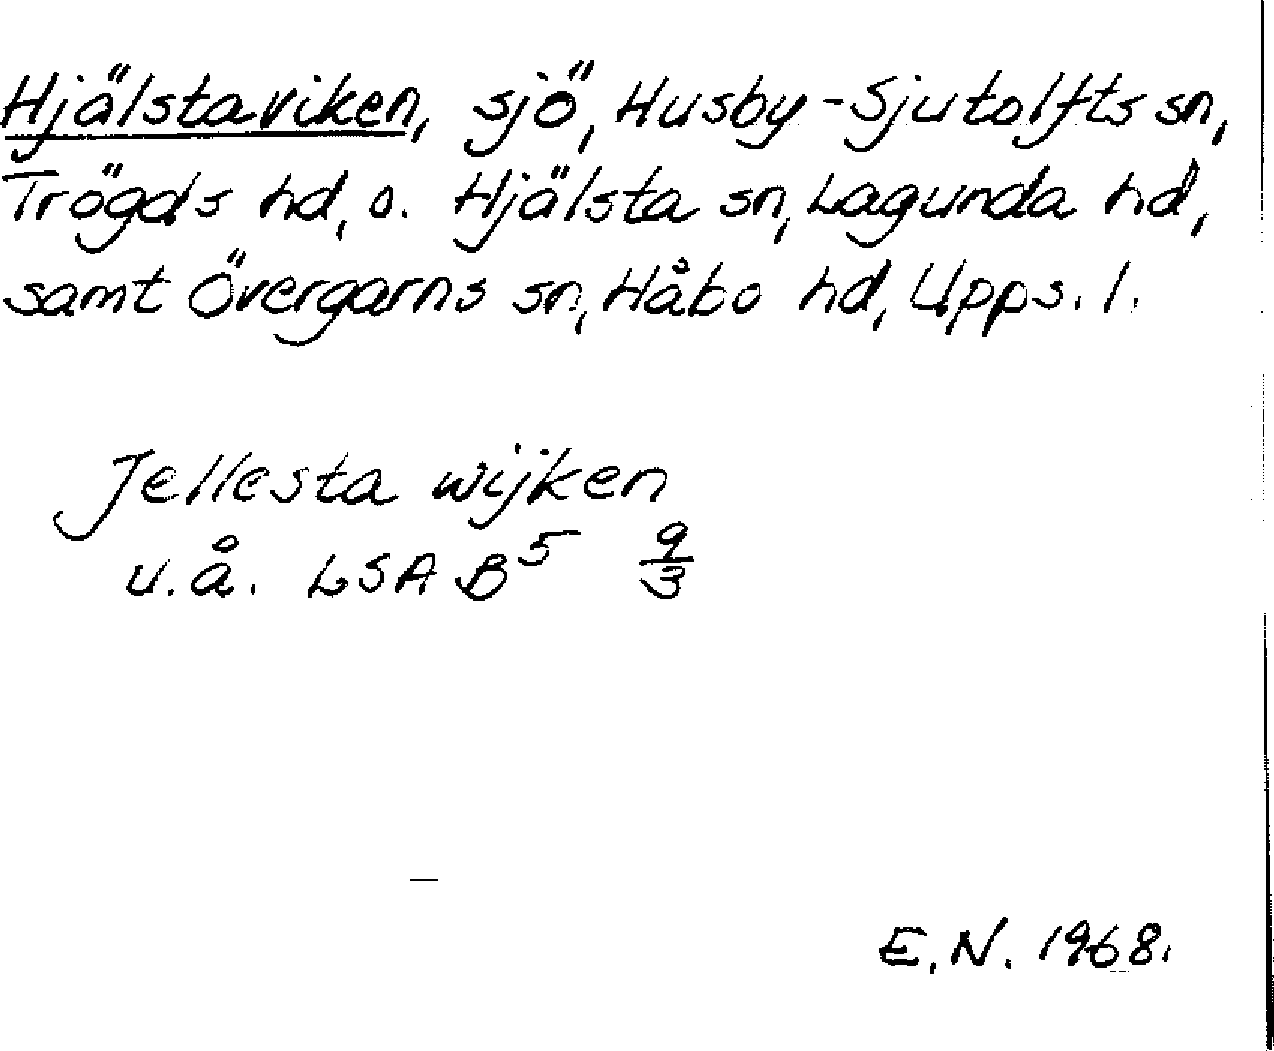 Hjälstaviken, sjö, Husby-Sjutolfts sn,
Trögds hd, o. Hjälsta sn, Lagunda hd,
samt Övergarns sn, Håbo hd, Upps. l.
Jellesta wijken
u.å. LSA B⁵ 9/3
E.N. 1968.